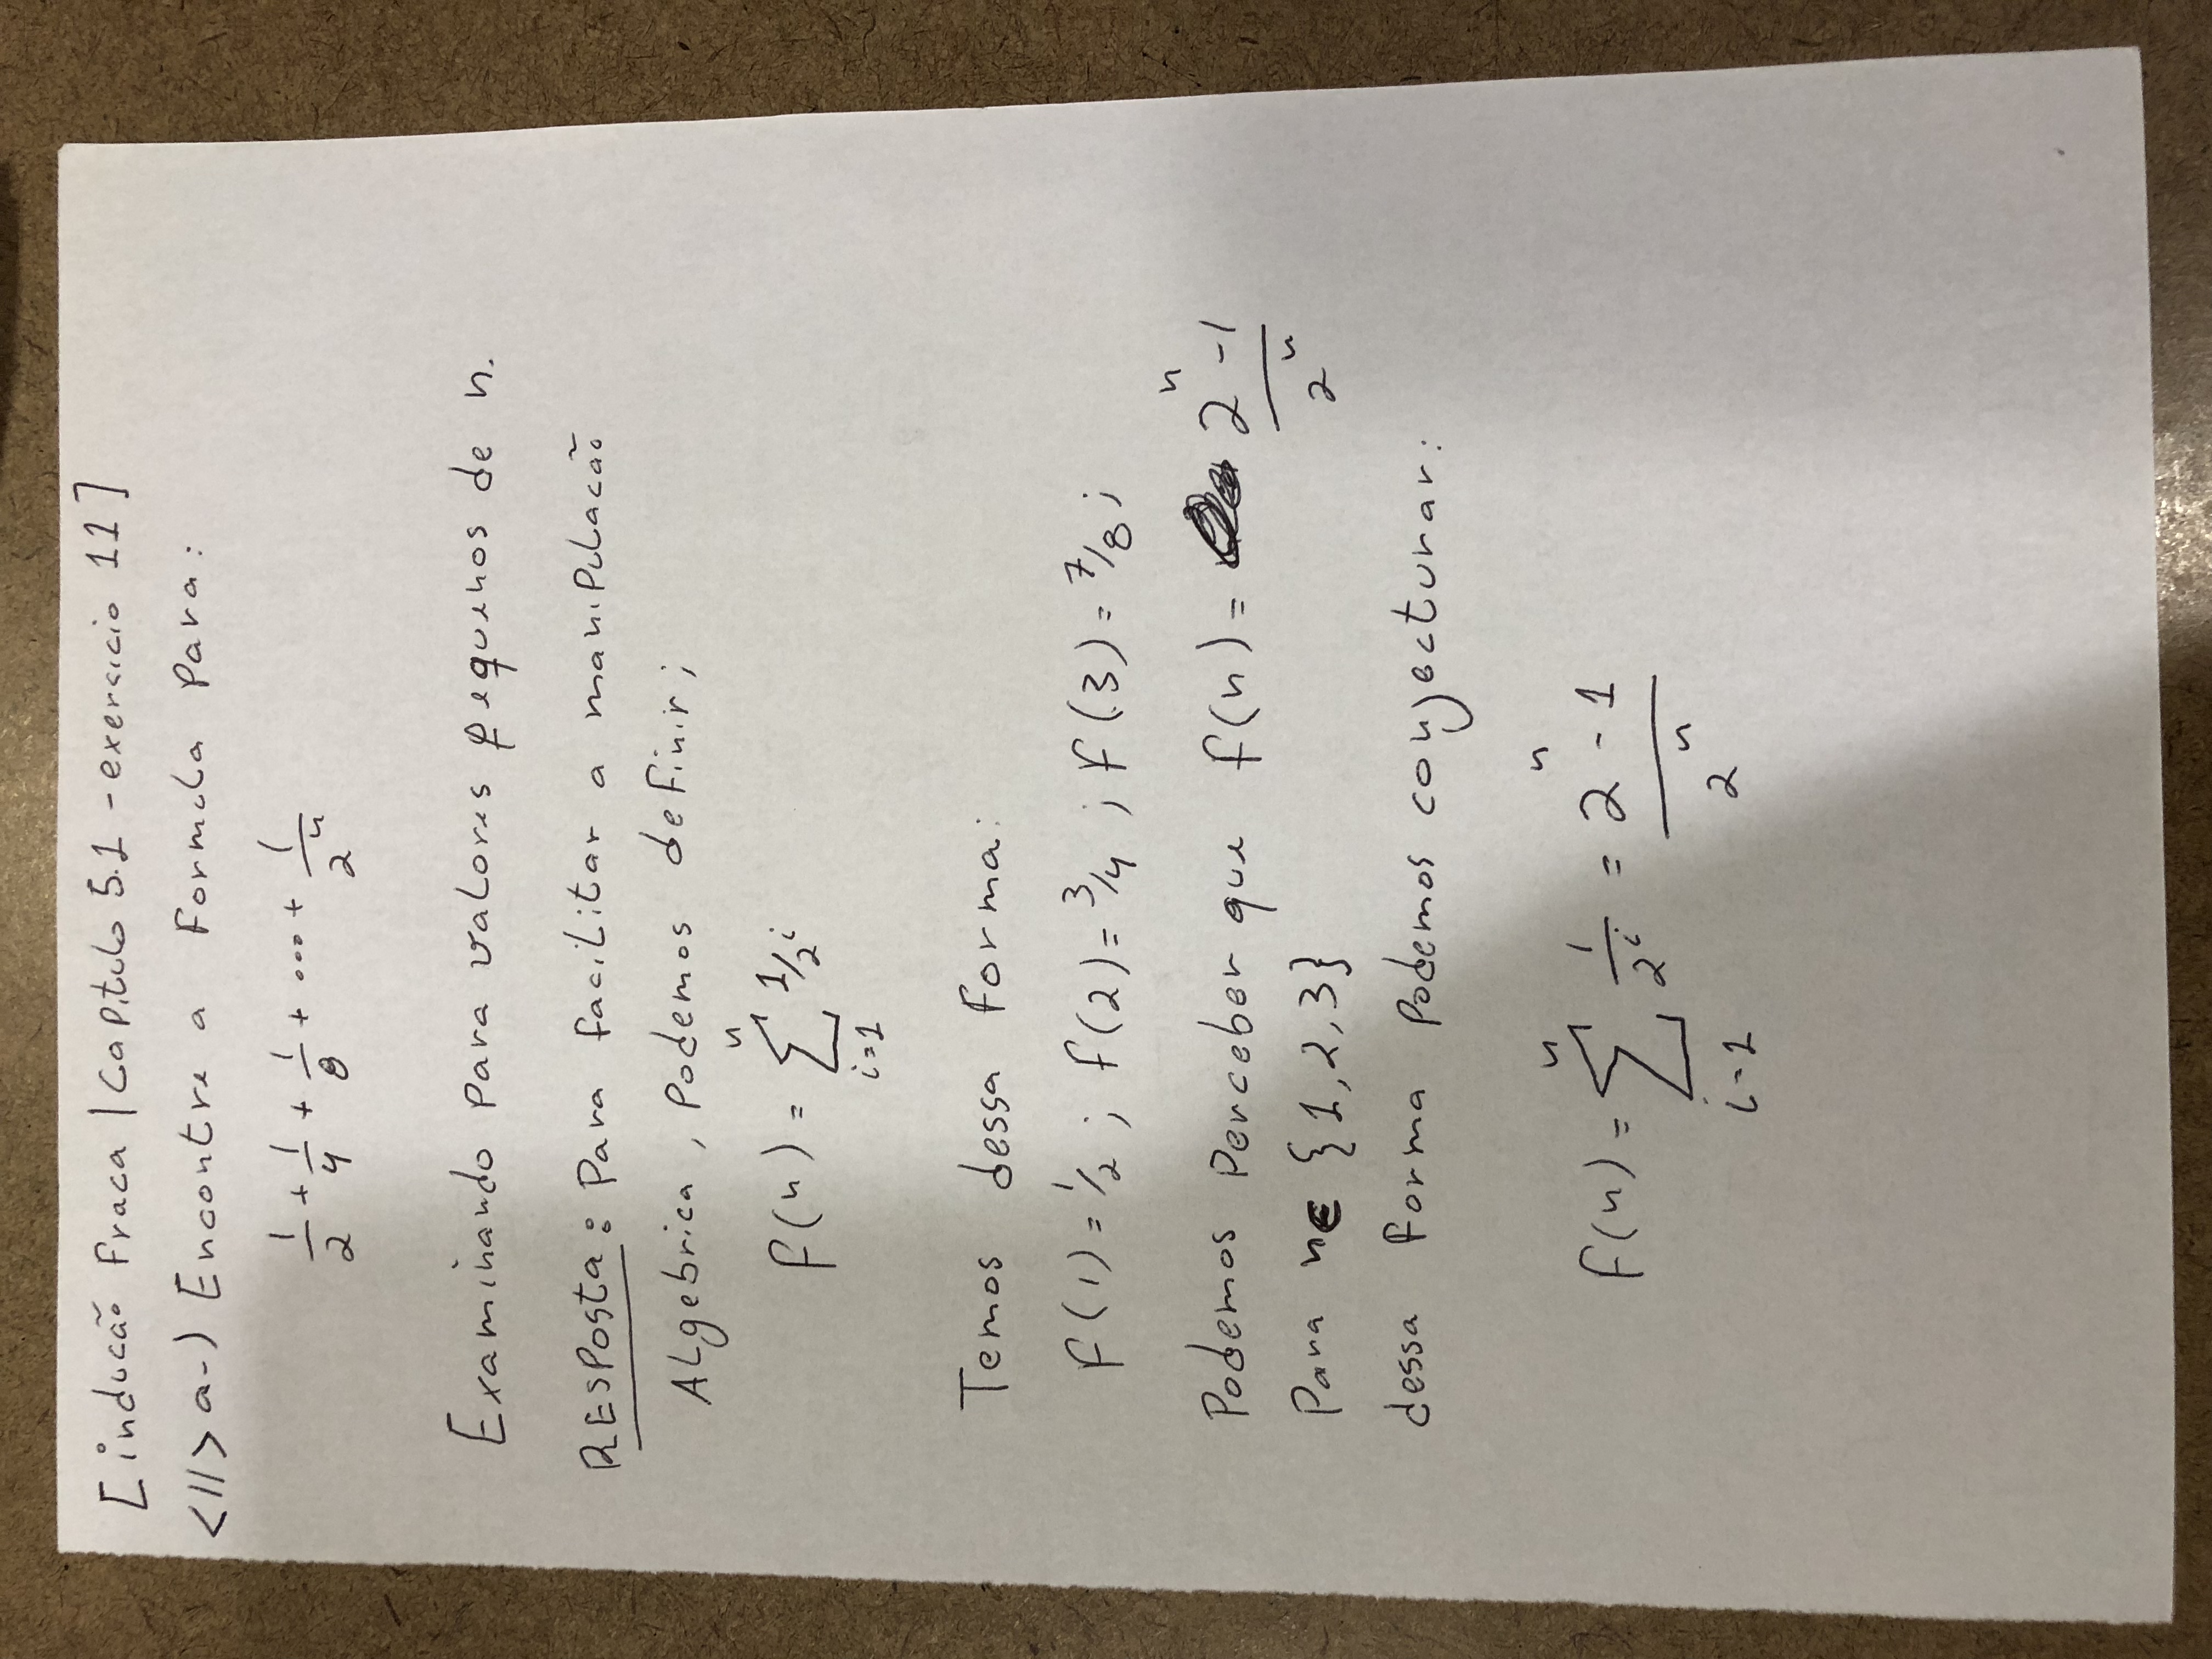 [inducão Fraca | Capitulo 5.1 - exercicio 11]
<11> a-) Encontre a Formula Para:
1/2 + 1/4 + 1/8 + ... + 1/2^n
Examinando Para valores pequenos de n.
RESPosta: Para facilitar a maniPulacão
ALgebrica, Podemos definir;
f(n) = ∑_{i=1}^{n} 1/2^i
Temos dessa Forma:
f(1) = 1/2 ; f(2) = 3/4 ; f(3) = 7/8 ;
Podemos Perceber que f(n) = (2^n - 1)/2^n
Para n ∈ {1, 2, 3}
dessa Forma Podemos conjecturar:
f(n) = ∑_{i=1}^{n} 1/2^i = (2^n - 1)/2^n